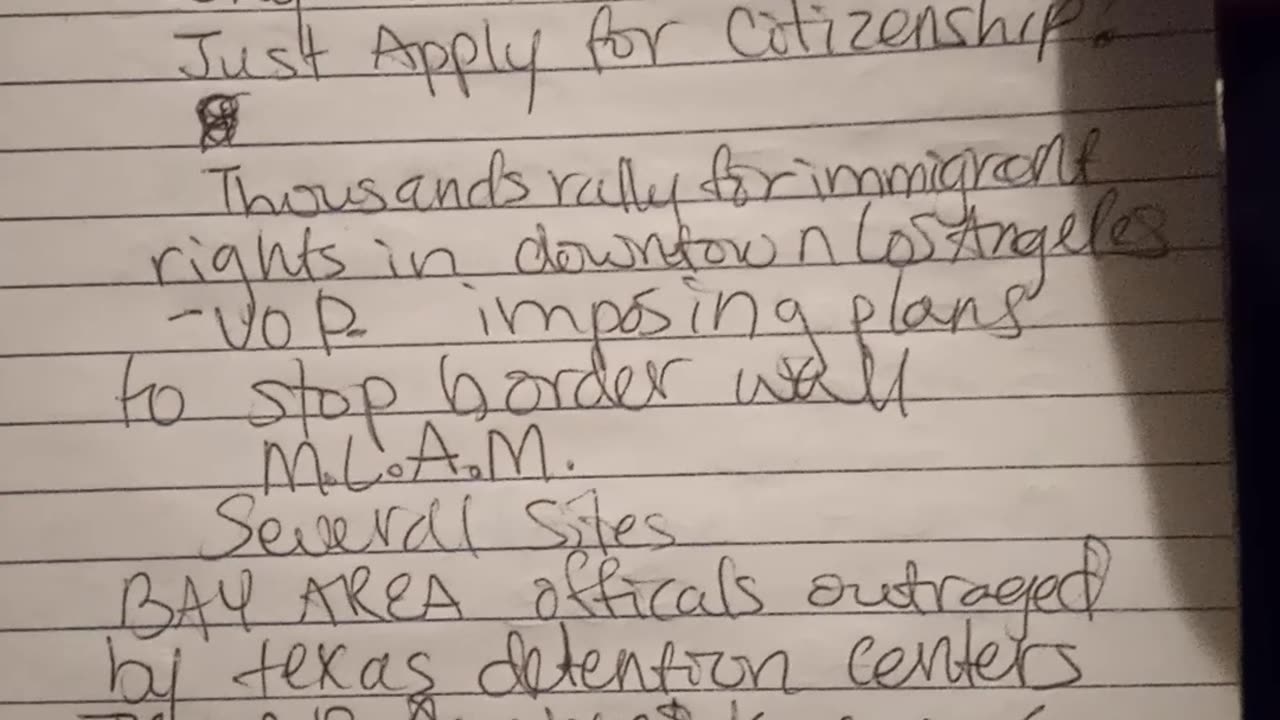 Just Apply for Citizenship.
Thousands rally for immigrant
rights in downtown Los Angeles
-VOP imposing plans
to stop border wall
M.L.A.M.
Several Sites
BAY AREA officals outraged
by texas detention centers